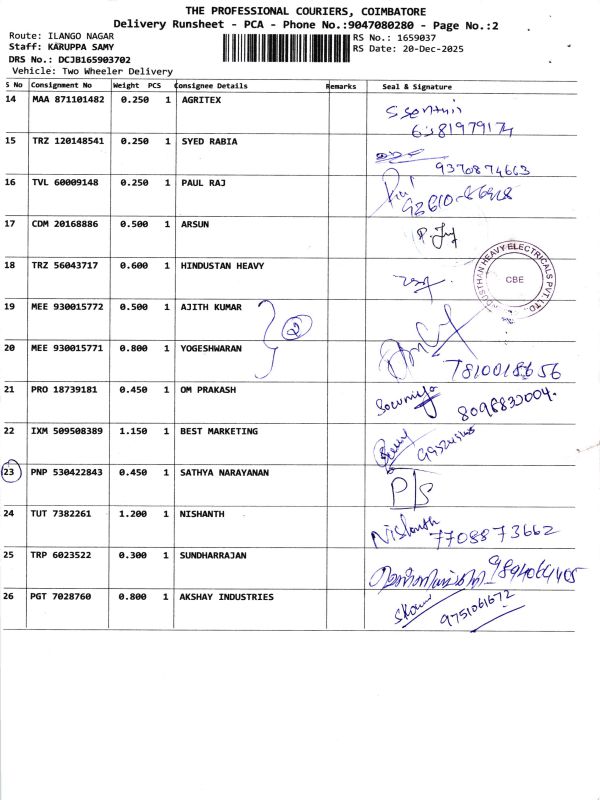 THE PROFESSIONAL COURIERS, COIMBATORE
Delivery Runsheet - PCA - Phone No.:9047080280 - Page No.:2
Route: ILANGO NAGAR RS No.: 1659037
Staff: KARUPPA SAMY RS Date: 20-Dec-2025
DRS No.: DCJB165903702
Vehicle: Two Wheeler Delivery
S No Consignment No Weight PCS Consignee Details Remarks Seal & Signature
14 MAA 871101482 0.250 1 AGRITEX
15 TRZ 120148541 0.250 1 SYED RABIA
9370874663
16 TVL 60009148 0.250 1 PAUL RAJ
17 CDM 20168886 0.500 1 ARSUN
18 TRZ 56043717 0.600 1 HINDUSTAN HEAVY
HEAVY ELECTRICALS PVT. LTD.
CBE
19 MEE 930015772 0.500 1 AJITH KUMAR
2
20 MEE 930015771 0.800 1 YOGESHWARAN
7810018656
21 PRO 18739181 0.450 1 OM PRAKASH
Sowmiya
22 IXM 509508389 1.150 1 BEST MARKETING
23 PNP 530422843 0.450 1 SATHYA NARAYANAN
P/S
24 TUT 7382261 1.200 1 NISHANTH
Nishanth 7708873662
25 TRP 6023522 0.300 1 SUNDHARRAJAN
26 PGT 7028760 0.800 1 AKSHAY INDUSTRIES
9751061672